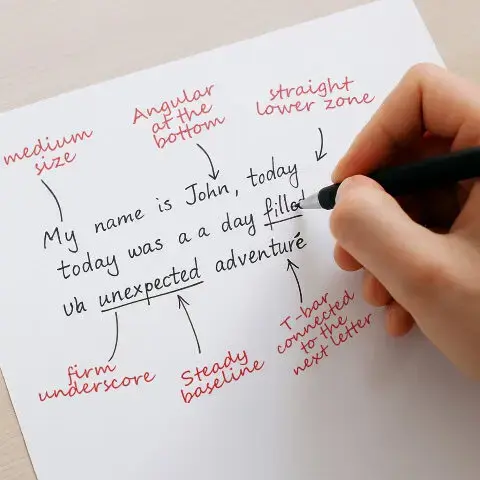 medium
size
Angular
at the
bottom
straight
lower zone
My name is John, today
today was a a day filled
uh unexpected adventure
firm
underscore
Steady
baseline
T-bar
connected
to the
next letter